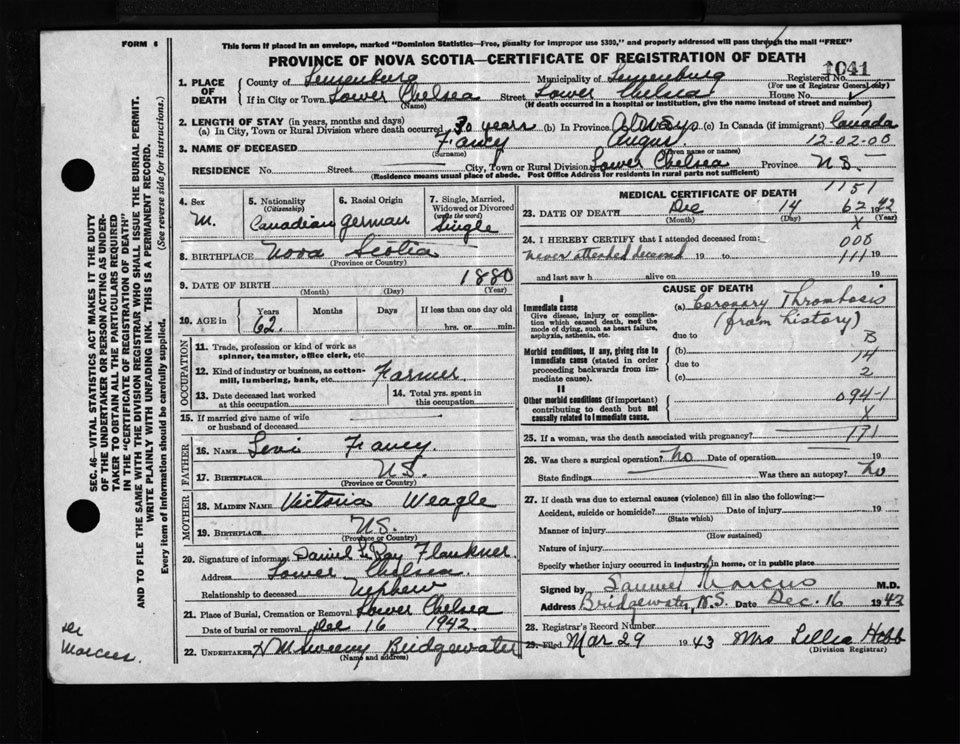 FORM 6
This form if placed in an envelope, marked "Dominion Statistics—Free, penalty for improper use $300," and properly addressed will pass through the mail "FREE"
PROVINCE OF NOVA SCOTIA—CERTIFICATE OF REGISTRATION OF DEATH
1041
1. PLACE OF DEATH
County of Lunenburg Municipality of Lunenburg Registered No.
(For use of Registrar General only)
If in City or Town Lower Chelsea Street Lower Chelsea House No.
(Name) (If death occurred in a hospital or institution, give the name instead of street and number)
2. LENGTH OF STAY (in years, months and days)
(a) In City, Town or Rural Division where death occurred 30 years (b) In Province Always (c) In Canada (if immigrant) Canada
12-02-00
3. NAME OF DECEASED Fancy Angus
(Surname) (Given name or names)
RESIDENCE No. Street City, Town or Rural Division Lower Chelsea Province N.S.
(Residence means usual place of abode. Post Office Address for residents in rural parts not sufficient)
4. Sex M.
5. Nationality (Citizenship) Canadian
6. Racial Origin German
7. Single, Married, Widowed or Divorced (write the word) Single
8. BIRTHPLACE Nova Scotia
(Province or Country)
9. DATE OF BIRTH 1880
(Month) (Day) (Year)
10. AGE in Years 62. Months Days If less than one day old
hrs. or min.
OCCUPATION
11. Trade, profession or kind of work as spinner, teamster, office clerk, etc
12. Kind of industry or business, as cotton-mill, lumbering, bank, etc. Farmer
13. Date deceased last worked at this occupation
14. Total yrs. spent in this occupation
15. If married give name of wife or husband of deceased
FATHER
16. NAME Levi Fancy
17. BIRTHPLACE N.S.
(Province or Country)
MOTHER
18. MAIDEN NAME Victoria Weagle
19. BIRTHPLACE N.S.
(Province or Country)
20. Signature of informant Daniel Ray
Address Lower Chelsea.
Relationship to deceased Nephew
21. Place of Burial, Cremation or Removal Lower Chelsea
Date of burial or removal Dec 16 1942.
22. UNDERTAKER H M Sweeny Bridgewater
(Name and address)
MEDICAL CERTIFICATE OF DEATH
1151
23. DATE OF DEATH Dec 14 62 42
(Month) (Day) (Year)
X
24. I HEREBY CERTIFY that I attended deceased from: 000
Never attended deceased 19 to 111 19
and last saw h alive on 19
CAUSE OF DEATH
I
Immediate cause
Give disease, injury or complication which caused death, not the mode of dying, such as heart failure, asphyxia, asthenia, etc.
(a) Coronary Thrombosis
(from history)
due to B
Morbid conditions, if any, giving rise to immediate cause (stated in order proceeding backwards from immediate cause).
(b) 14
due to 2
(c)
II
Other morbid conditions (if important) contributing to death but not causally related to immediate cause.
094-1
X
25. If a woman, was the death associated with pregnancy? 171
26. Was there a surgical operation? No Date of operation 19
State findings Was there an autopsy? No
27. If death was due to external causes (violence) fill in also the following:—
Accident, suicide or homicide? Date of injury 19
(State which)
Manner of injury
(How sustained)
Nature of injury
Specify whether injury occurred in industry, in home, or in public place
Signed by Samuel Marcus M.D.
Address Bridgewater, N.S. Date Dec. 16 1942
28. Registrar's Record Number
29. Filed Mar 29 1943 Mrs Lillia Hobb
(Division Registrar)
SEC. 46—VITAL STATISTICS ACT MAKES IT THE DUTY
OF THE UNDERTAKER OR PERSON ACTING AS UNDER-
TAKER TO OBTAIN ALL THE PARTICULARS REQUIRED
IN THE "CERTIFICATE OF REGISTRATION OF DEATH"
AND TO FILE THE SAME WITH THE DIVISION REGISTRAR WHO SHALL ISSUE THE BURIAL PERMIT.
WRITE PLAINLY WITH UNFADING INK. THIS IS A PERMANENT RECORD.
Every item of information should be carefully supplied. (See reverse side for instructions.)
Dr
Marcus.